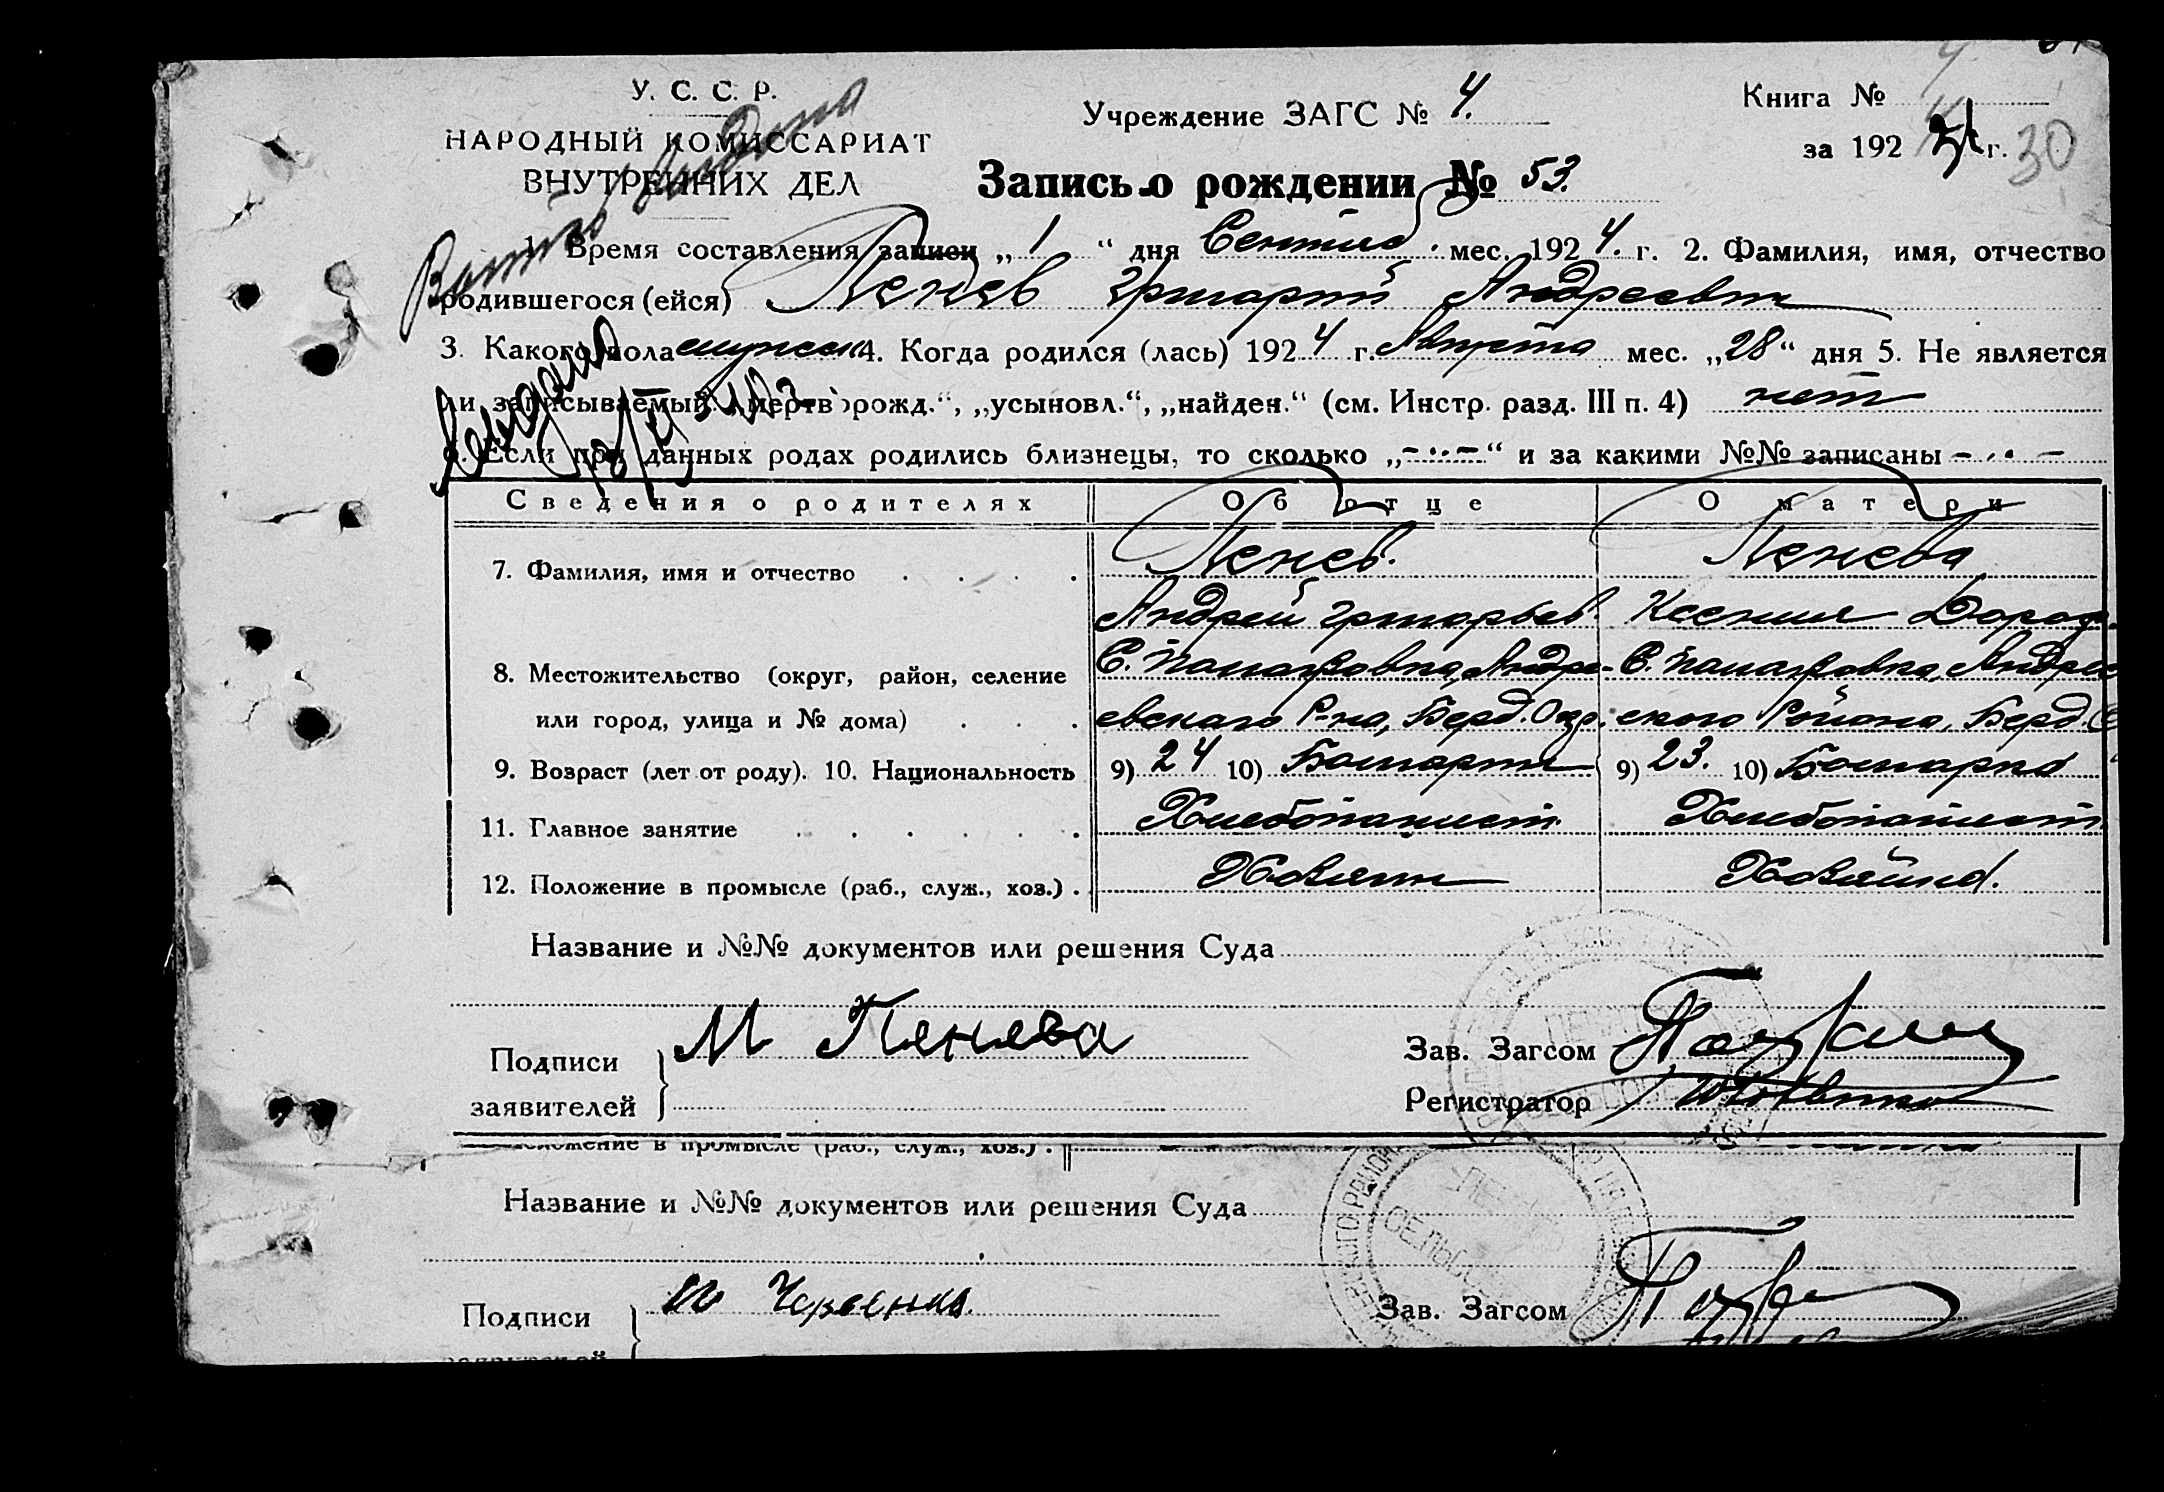 У. С. С. Р.
НАРОДНЫЙ КОМИССАРИАТ
ВНУТРЕННИХ ДЕЛ
Учреждение ЗАГС № 4.
Книга №
за 192 4 г. 30
Запись о рождении № 53.
1. Время составления записи „ 1 “ дня Сентяб. мес. 192 4. г. 2. Фамилия, имя, отчество
родившегося (ейся) Пенев Григорий Андреевич
3. Какого пола мужск 4. Когда родился (лась) 192 4 г. Августа мес. „28“ дня 5. Не является
ли записываемый „мертворожд.“, „усыновл.“, „найден.“ (см. Инстр. разд. III п. 4) нет
6. Если при данных родах родились близнецы, то сколько „-..-“ и за какими №№ записаны -..-
Сведения о родителях Об отце О матери
7. Фамилия, имя и отчество . . . . Пенев. Пенева
Андрей Григорьев. Ксения Дороф.
8. Местожительство (округ, район, селение С. Полоузовка, Андре- С. Полоузовка, Андреев
или город, улица и № дома) . . . евского Р-на, Берд. Окр. ского Района, Берд.
9. Возраст (лет от роду). 10. Национальность 9) 24 10) Болгарин 9) 23. 10) Болгарка
11. Главное занятие . . . . . . Хлебопашест. Хлебопашест.
12. Положение в промысле (раб., служ., хоз.) . Хозяин Хозяйка.
Название и №№ документов или решения Суда
Подписи М Пенева Зав. Загсом
заявителей Регистратор
Положение в промысле (раб., служ., хоз.) .
Название и №№ документов или решения Суда
Подписи Зав. Загсом
заявителей